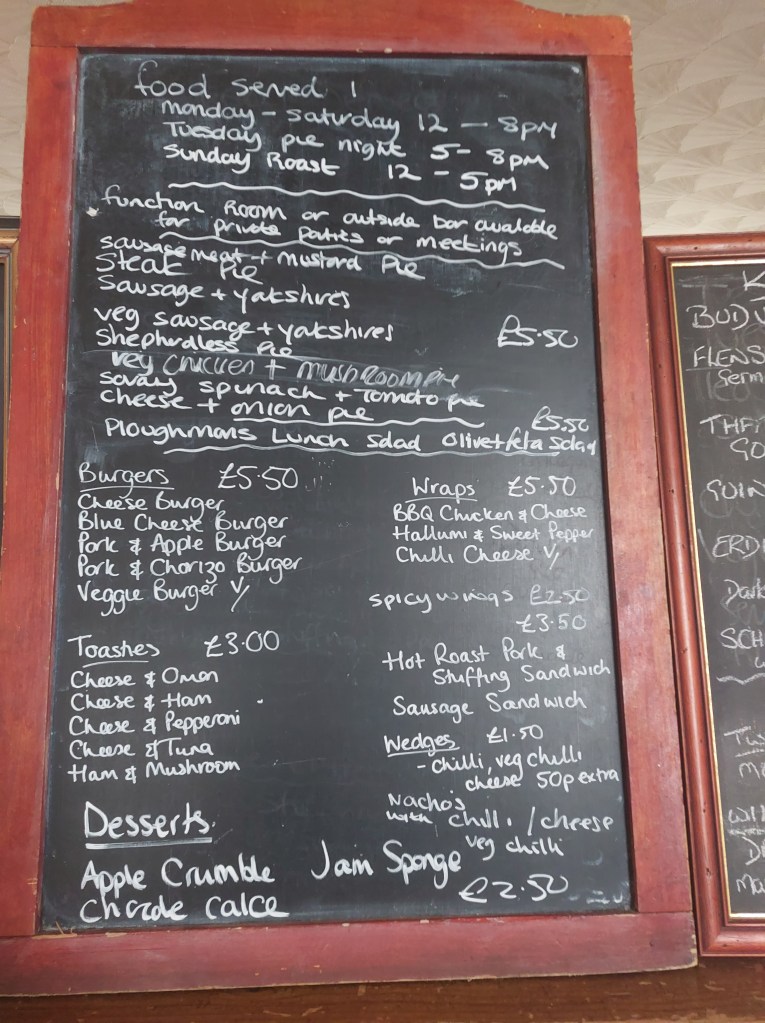 food served
monday - saturday 12 - 8pm
Tuesday pie night 5 - 8pm
Sunday Roast 12 - 5pm
function Room or outside bar available
for private Parties or meetings
sausage meat + mustard Pie
Steak Pie
Sausage + yorkshires
veg sausage + yorkshires £5.50
Shephrdless Pie
veg chicken + mushroom pie
savoy spinach + Tomato pie
cheese + onion pie £5.50
Ploughmans Lunch Salad Olive+feta Salad
Burgers £5.50
Cheese Burger
Blue Cheese Burger
Pork & Apple Burger
Pork & Chorizo Burger
Veggie Burger V
Wraps £5.50
BBQ Chicken & Cheese
Hallumi & Sweet Pepper
Chilli Cheese V
spicy wings £2.50
£3.50
Hot Roast Pork &
Stuffing Sandwich
Sausage Sandwich
Toasties £3.00
Cheese & Onion
Cheese & Ham
Cheese & Pepperoni
Cheese & Tuna
Ham & Mushroom
Wedges £1.50
- chilli, veg chilli
cheese 50p extra
Nacho's
with chilli / cheese
veg chilli
Desserts
Apple Crumble Jam Sponge
Chocolate Cake £2.50
K
BUDW
FLENS
Germ
GO
GUIN
ERDI
Dark
SCH